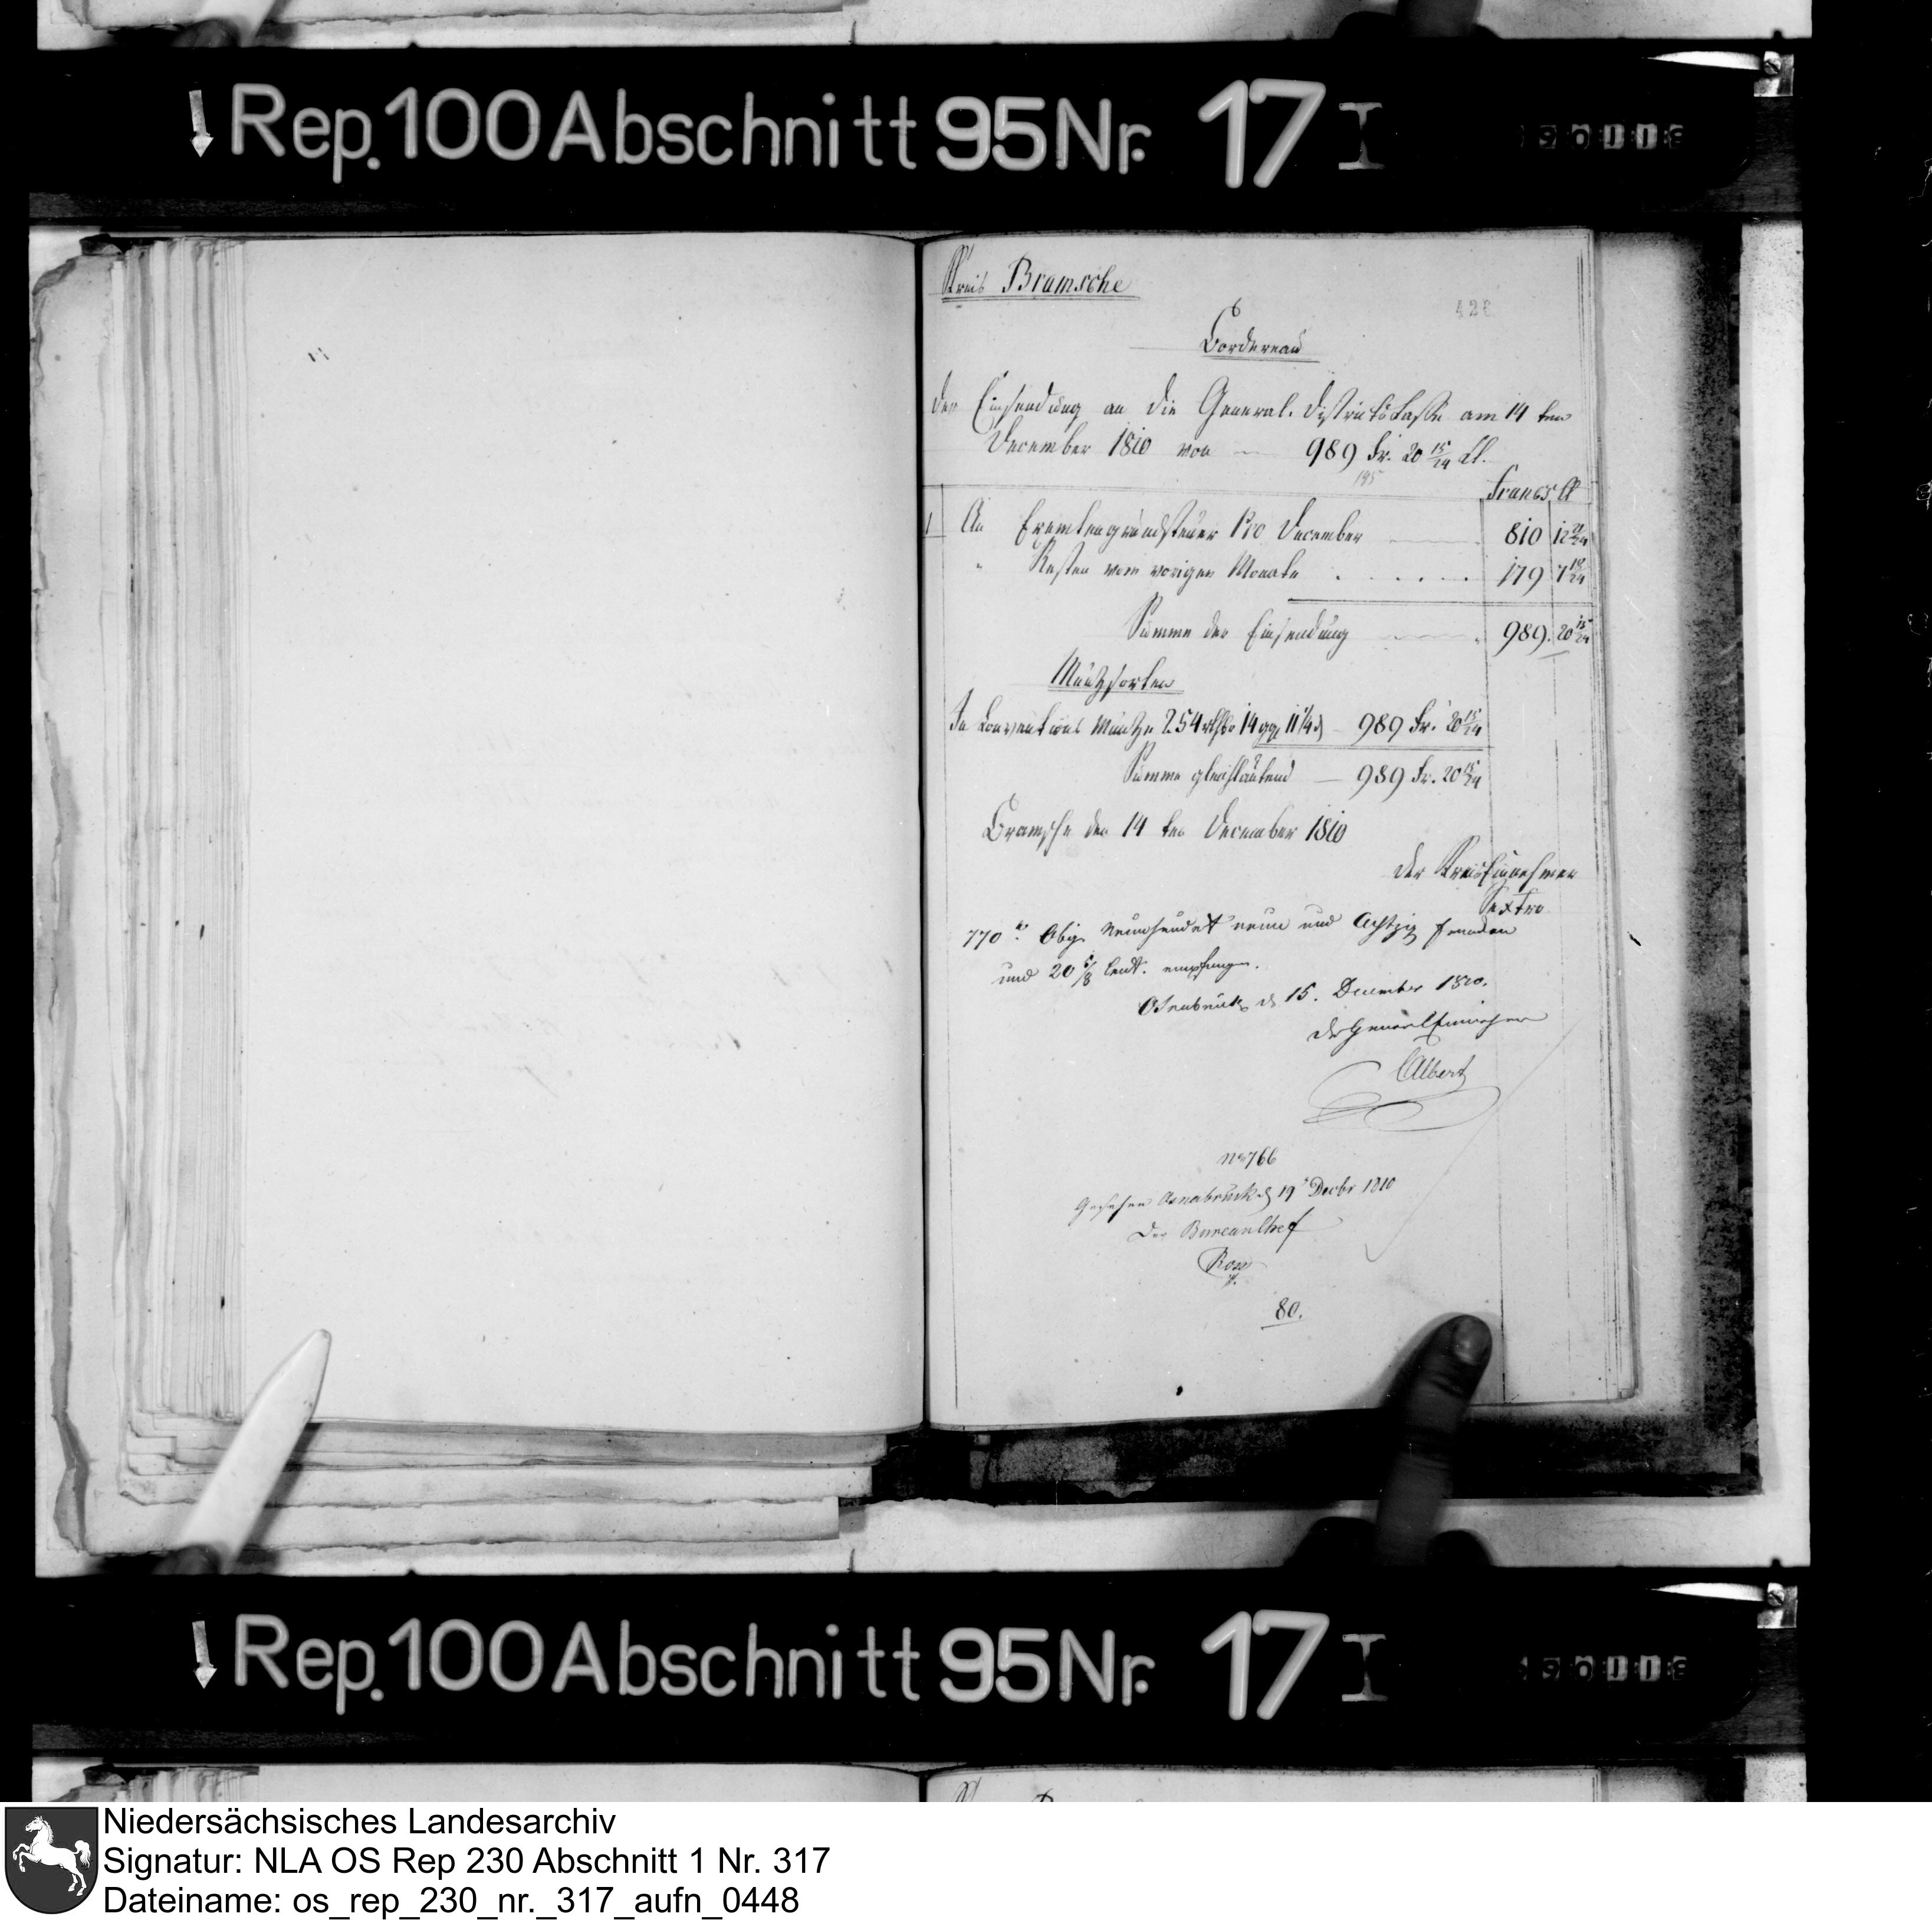 Rep. 100 Abschnitt 95 Nr. 17 I
Kreis Bramsche
428
Bordereau
der Einsendung an die General. Districtscasse am 14 ten
December 1810 von 989 Fr. 20 15/24 Ct.
195
Francs Ct
1 An Exemtengrundsteuer Pro December 810 12 21/24
" Resten vom vorigen Monate . . . . . . 179 7 18/24
Summe der Einsendung 989. 20 15/24
Müntzsorten
In Conventions Müntze 254 rthlr 14 ggr 11 1/4 d 989 Fr. 20 15/24
Summe gleichlautend 989 Fr. 20 15/24
Bramsche den 14 ten December 1810
Der Kreiseinnehmer
Sextro
770 Obige Neunhundert neun und Achtzig Franken
und 20 5/8 Cent. empfangen.
Osnabrück d 15. December 1810.
Der General Einnehmer
Albert
No 766
Gesehen Osnabrück d 19 Decbr 1810
Der Bureau Chef
Ross
80.
Rep. 100 Abschnitt 95 Nr. 17 I
Niedersächsisches Landesarchiv
Signatur: NLA OS Rep 230 Abschnitt 1 Nr. 317
Dateiname: os_rep_230_nr._317_aufn_0448